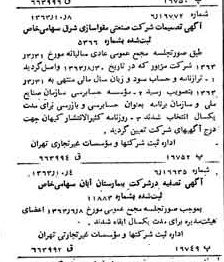 ۶/۱۶۷۷۲ ۱۳۶۳/۱۰/۸
آگهی تصمیمات شرکت صنعتی مقواسازی شرق سهامی‌خاص
ثبت‌شده بشماره ۵۳۶۶
طبق صورتجلسه مجمع عمومی عادی سالیانه مورخ
شرکت مزبور که در تاریخ واصل گردید
۱- ترازنامه و حساب سود و زیان سال مالی منتهی به
۱۳۶۲ بتصویب رسید ۲- مؤسسه حسابرسی سازمان صنایع
ملی و سازمان برنامه بعنوان حسابرسی و بازرسی برای مدت
یکسال انتخاب شدند ۳- روزنامه کثیرالانتشار کیهان جهت
درج آگهیهای شرکت تعیین گردید
اداره ثبت شرکتها و مؤسسات غیرتجاری تهران
پ ۱۶۷۵۲ ق ۶۶۳۹۹۴
۶/۱۶۶۳۵
آگهی تصفیه در شرکت بیمارستان آبان سهامی‌خاص
ثبت‌شده بشماره ۱۱۸۸۳
بموجب صورتجلسه مجمع عمومی مورخ اعضای
هیئت‌مدیره برای مدت یکسال ابقاء شدند
اداره ثبت شرکتها و مؤسسات غیرتجارتی تهران
پ ۱۶۷۴۹ ق ۶۶۳۹۹۲